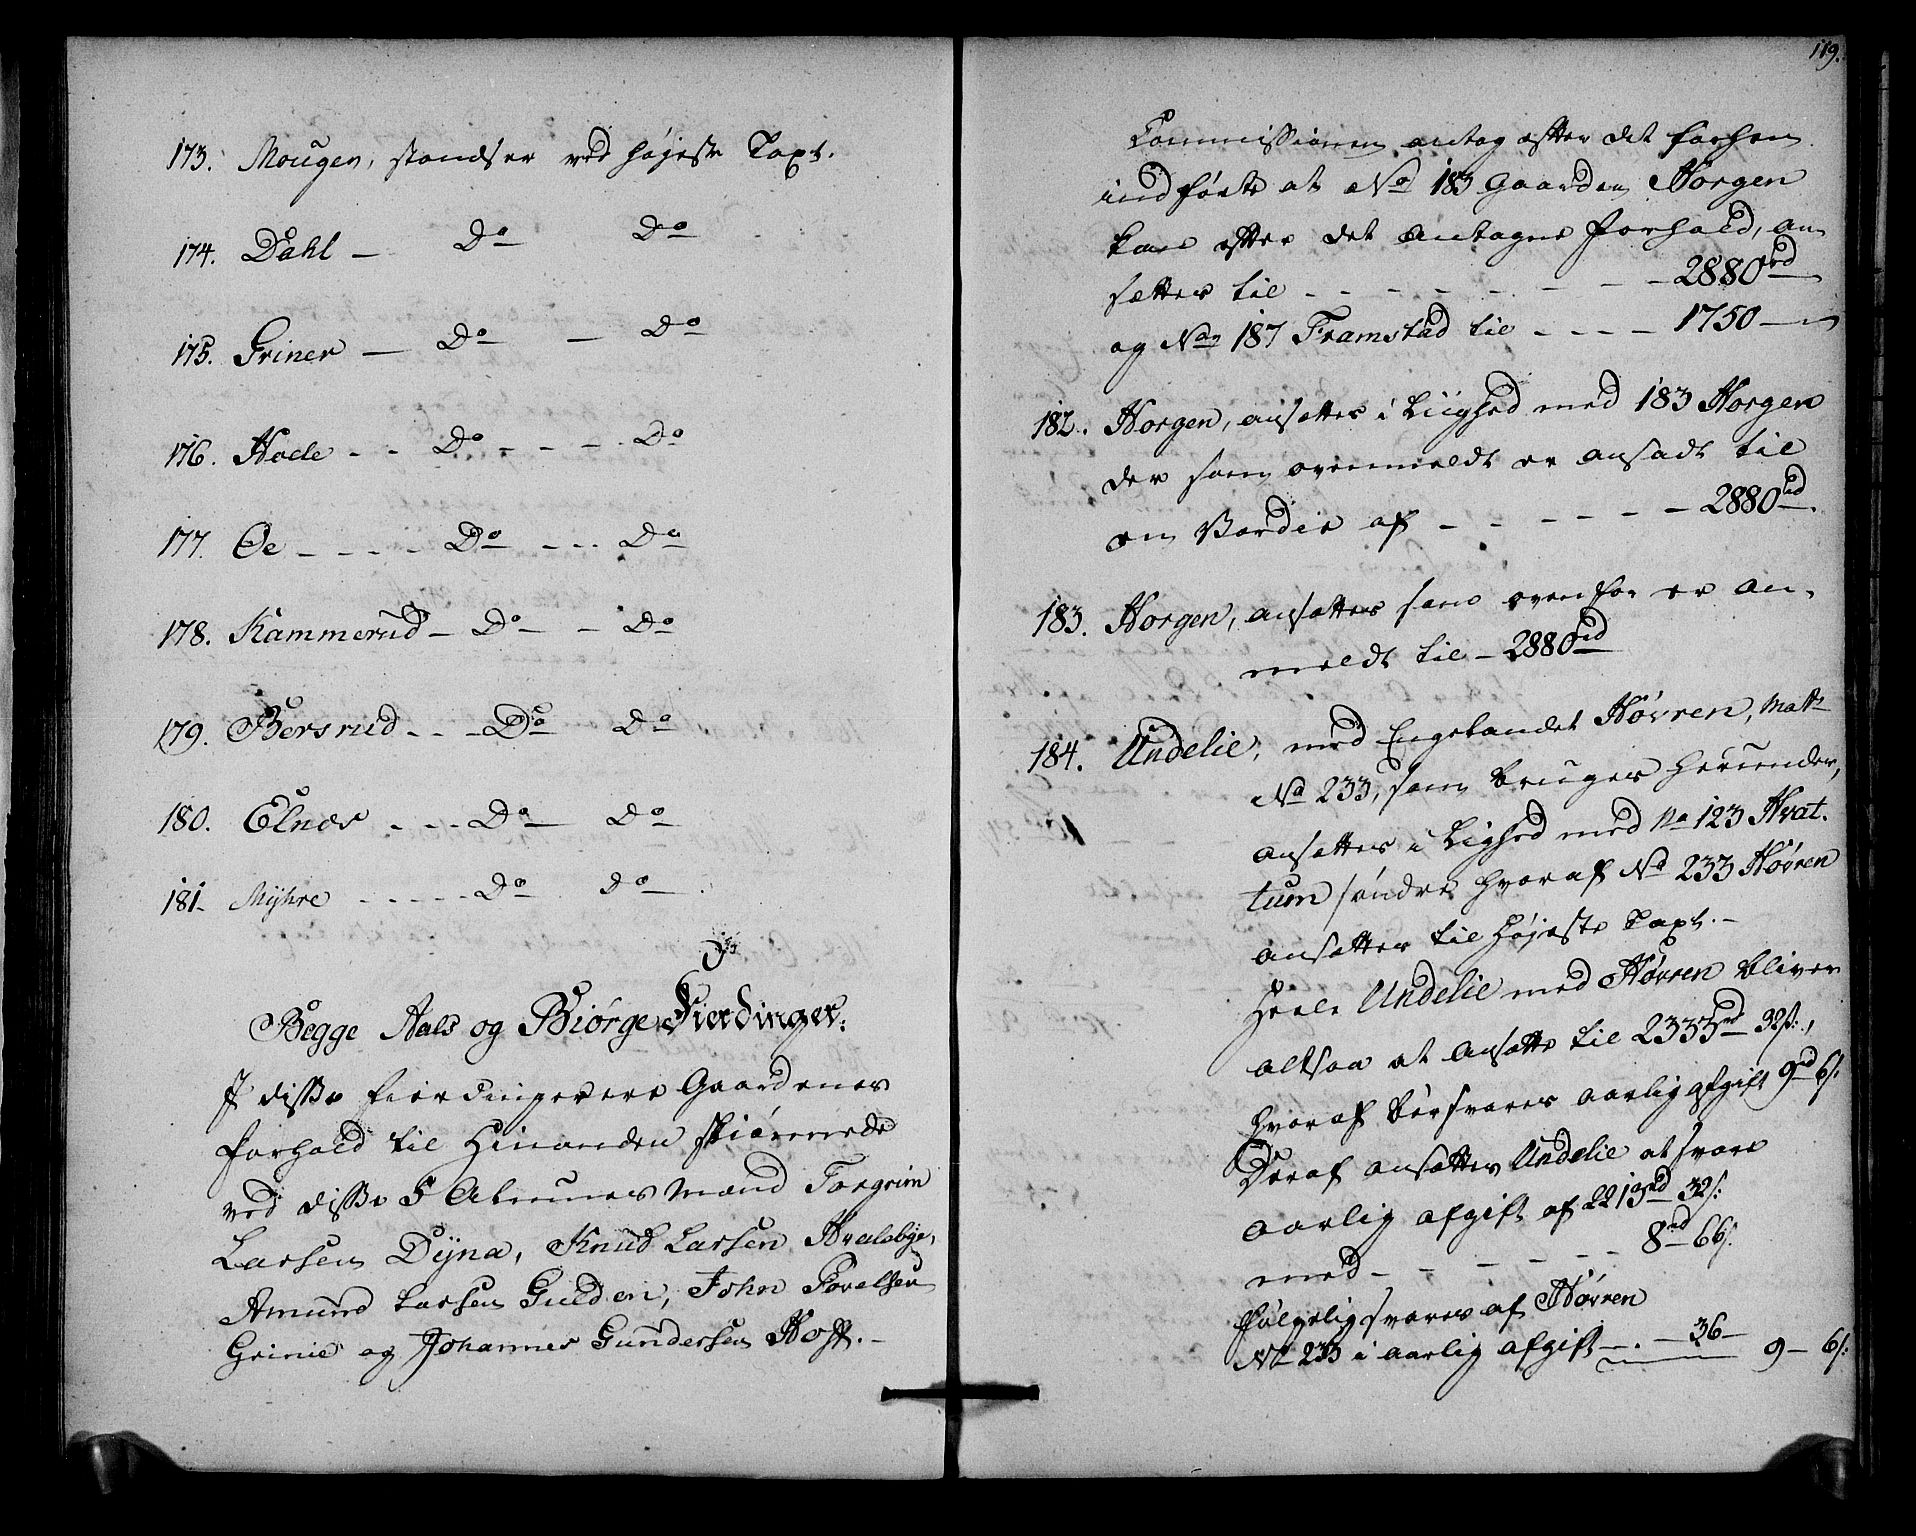 173. Mougen, standser ved højeste Taxt.
174. Dahl — Do Do
175. Griner — Do — Do
176. Hoele - - Do - - - Do
177. Oe - - - - Do - - - Do
178. Kammerud - Do - - Do
179. Bersrud - - - Do Do
180. Elnæs - - - Do Do
181. Mÿhre - - - - - Do Do
J
Begge Aals og Biørge Fierdinger:
J disse Fierdingers ere Gaardenes
forhold til Hinanden skiønnede
ved disse 5 Almues Mænd Torgrim
Larsen Dÿna, Knud Larsen Hvalebye,
Amund Larsen Gulden, John Povelsen
Grinie og Johannes Gundersen Hoff. -
119.
Commissionen antog efter det forhen
indførte at No 183 Gaarden Horgen
kan efter det antagne forhold, an
sættes til - - - - - - - 2880rd
og No 187 Framstad til - - - - 1750 —
182. Horgen, ansættes i Liighed med 183 Horgen
der som ovenmeldt er ansadt til
en Værdie af - - - - - - 2880rd.
183. Horgen, ansættes som ovenfor er an-
meldt til - 2880rd
184. Undelie, med Engelandet Høvren, Matr
No 233, som bruges herunder,
ansættes i Lighed med No 123 Hvat-
tum søndre hvoraf No 233 Høvren
ansættes til højeste Taxt. -
Heele Undelie med Høvren bliver
altsaa at ansætte til 2333rd 32s:,
hvoraf bør svares aarlig afgift 9rd 6s:
Deraf ansættes Undelie at svare
aarlig afgift af 2213rd 32s:
med - - - - - 8rd 66s:
følgelig svares af Høvren
No 233 i aarlig afgift - . - 36 - 9 - 6s: